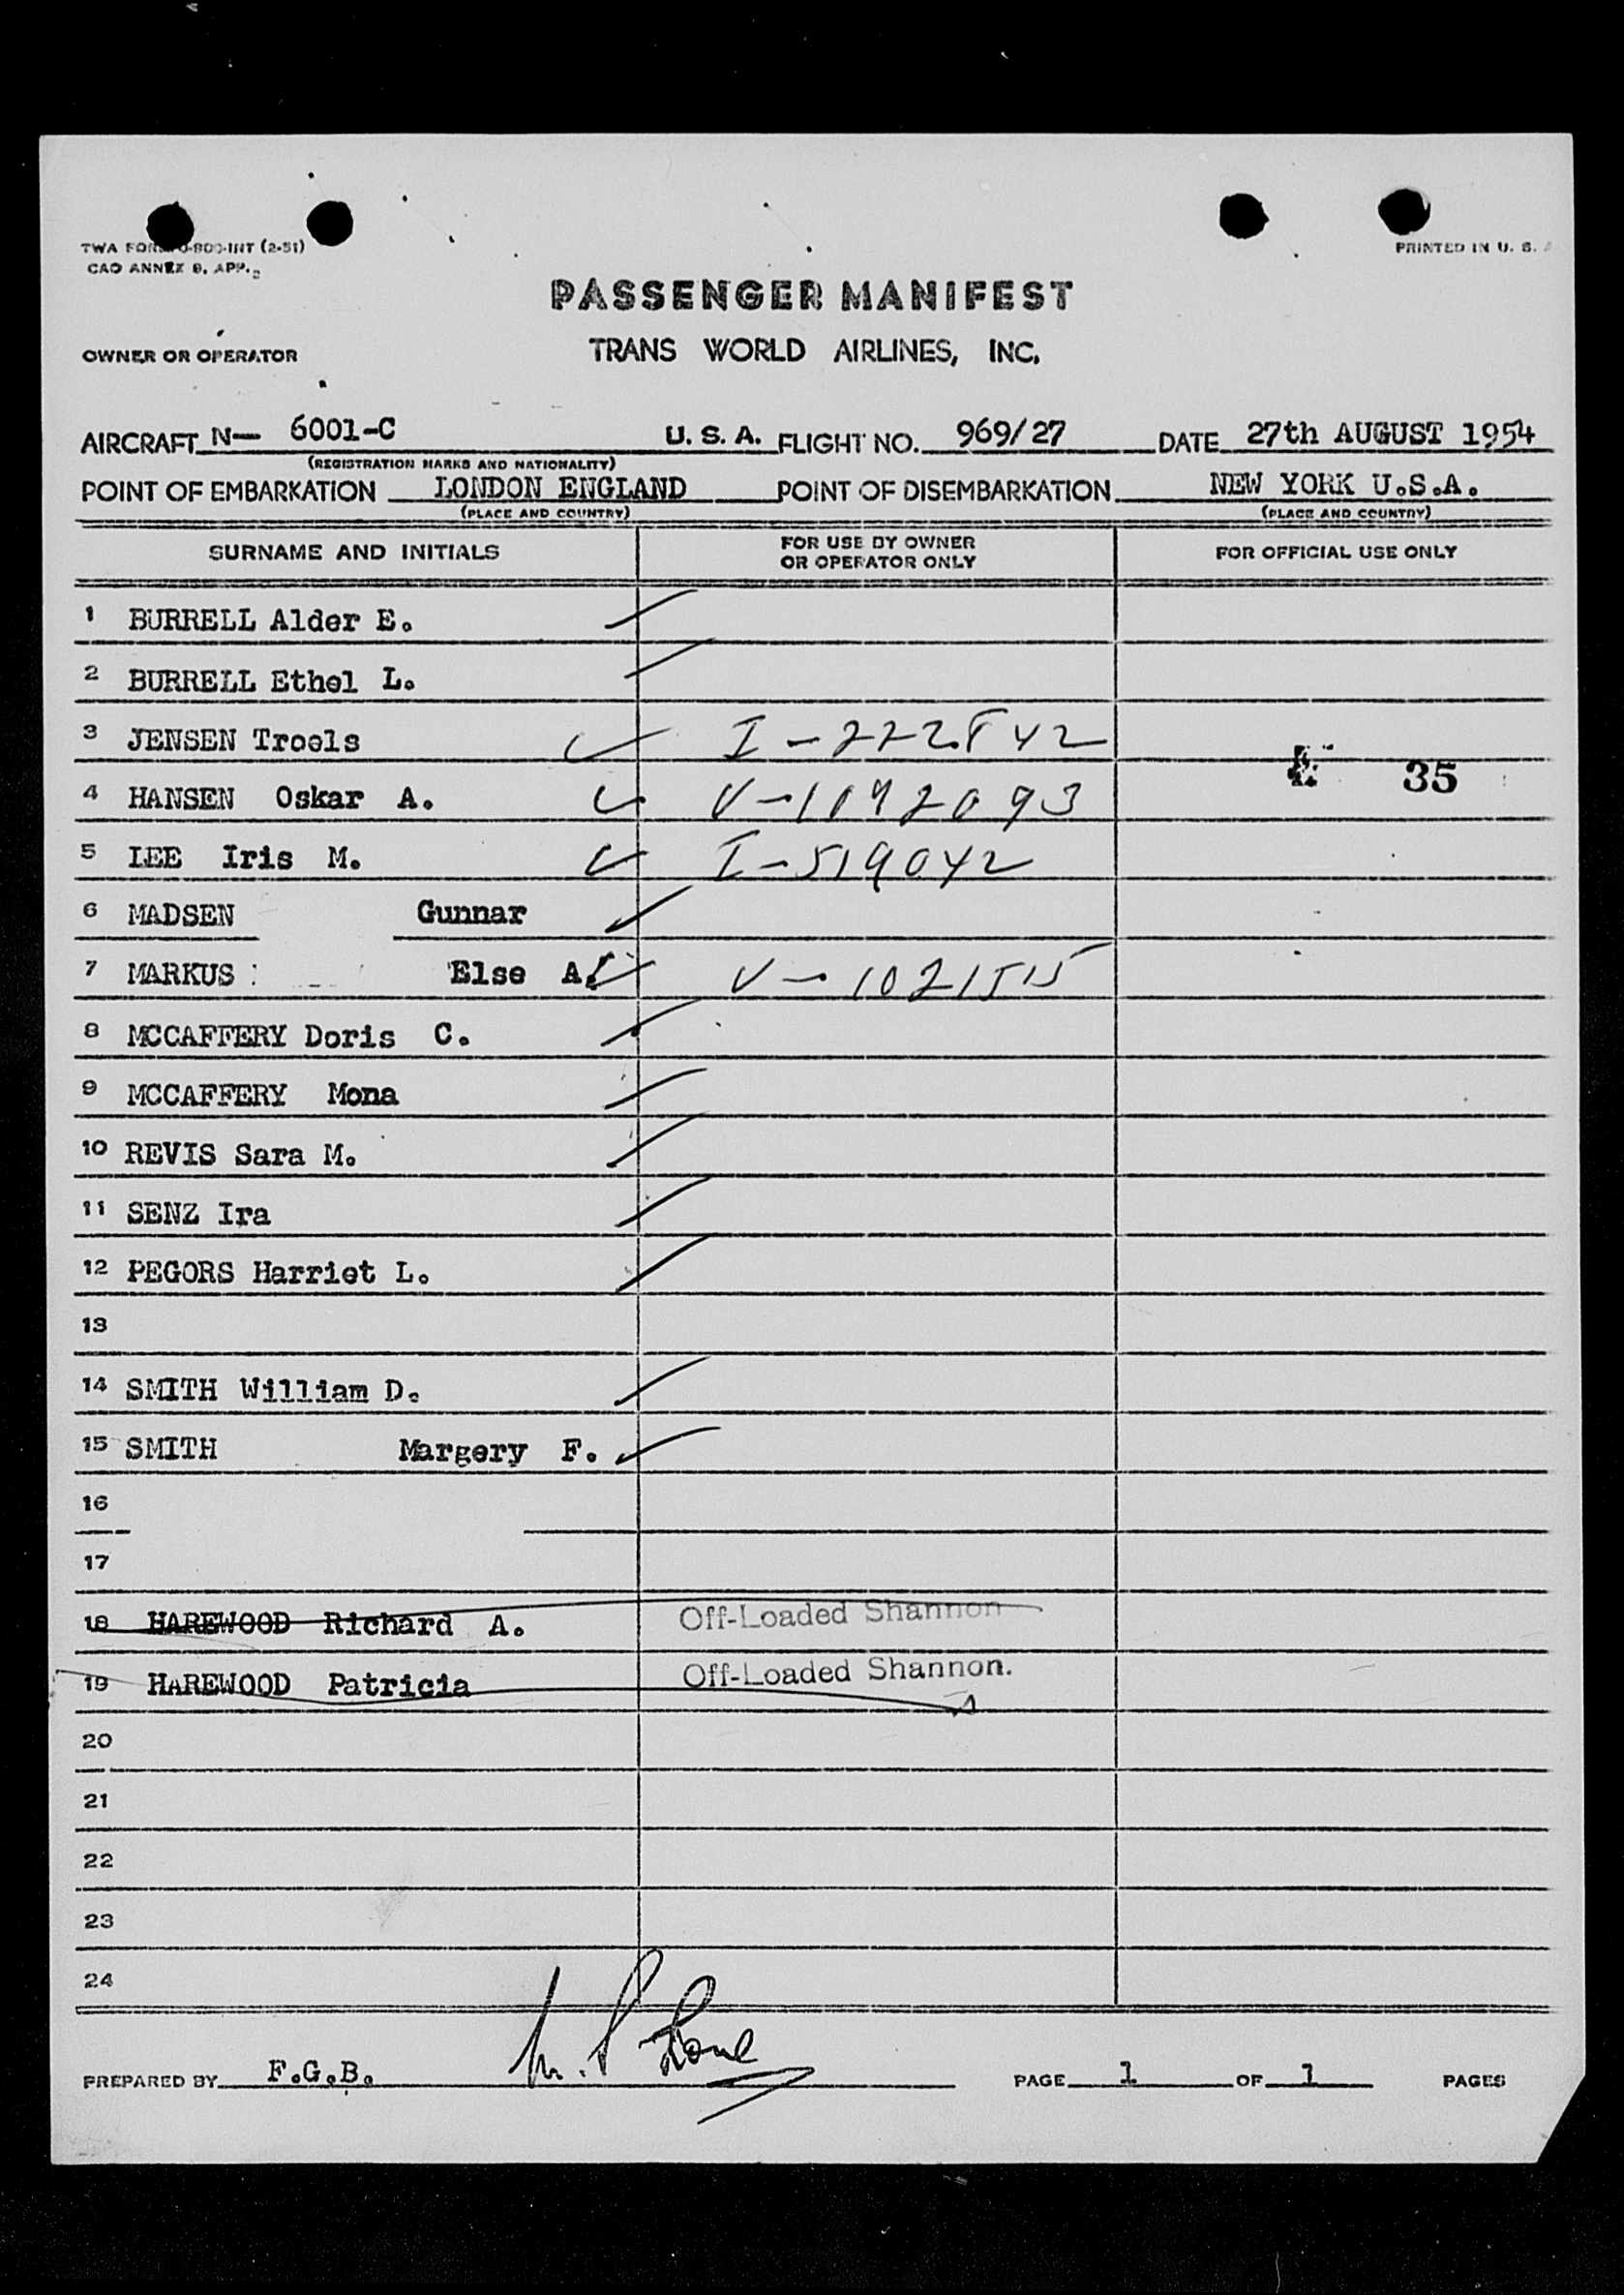 PRINTED IN U. S.
CAO ANNEX 9, APP.
PASSENGER MANIFEST
OWNER OR OPERATOR TRANS WORLD AIRLINES, INC.
AIRCRAFT N— 6001-C U. S. A. FLIGHT NO. 969/27 DATE 27th AUGUST 1954
(REGISTRATION MARKS AND NATIONALITY)
POINT OF EMBARKATION LONDON ENGLAND POINT OF DISEMBARKATION NEW YORK U.S.A.
(PLACE AND COUNTRY) (PLACE AND COUNTRY)
SURNAME AND INITIALS FOR USE BY OWNER OR OPERATOR ONLY FOR OFFICIAL USE ONLY
1 BURRELL Alder E.
2 BURRELL Ethel L.
3 JENSEN Troels I-222842
35
4 HANSEN Oskar A.
5 LEE Iris M. I-519042
6 MADSEN Gunnar
7 MARKUS Else A. V-1021515
8 MCCAFFERY Doris C.
9 MCCAFFERY Mona
10 REVIS Sara M.
11 SENZ Ira
12 PEGORS Harriet L.
13
14 SMITH William D.
15 SMITH Margery F.
16
17
18 HAREWOOD Richard A. Off-Loaded Shannon
19 HAREWOOD Patricia Off-Loaded Shannon.
20
21
22
23
24
PREPARED BY F.G.B. PAGE 1 OF 1 PAGES